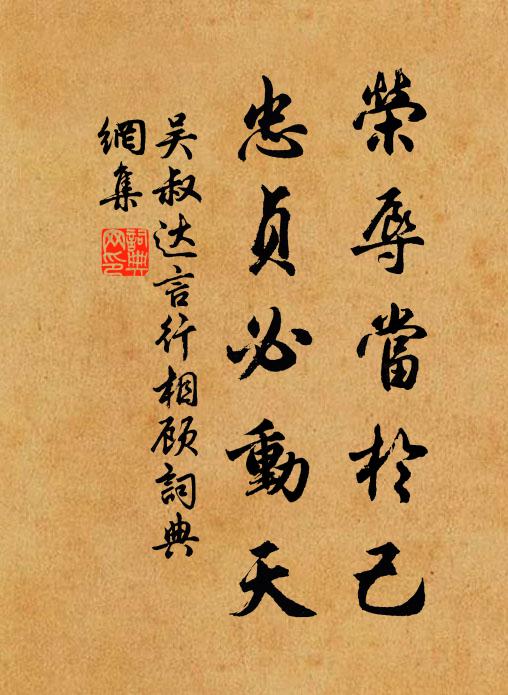 榮辱當於己
忠貞必動天
吴叔达言行相顾詞典
網集
詞典
网印